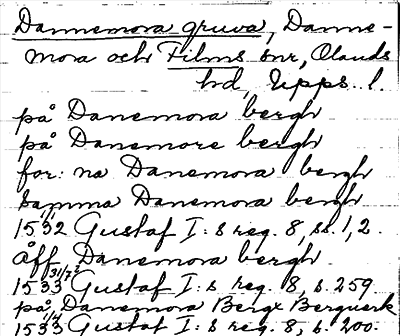 Dannemora gruva, Danne-
mora och Films snr, Olands
hd, Upps. l.
på Danemora bergh
på Danemore bergh
for: na Danemora bergh
Samma Danemora bergh
1532 1/1 Gustaf I:s reg. 8, ss. 1, 2.
åff Danemora bergh
1533 31/7 Gustaf I:s reg. 8, s. 259
på Danemora Bergx Bergverk
1533 1/1 Gustaf I:s reg. 8, s. 200.